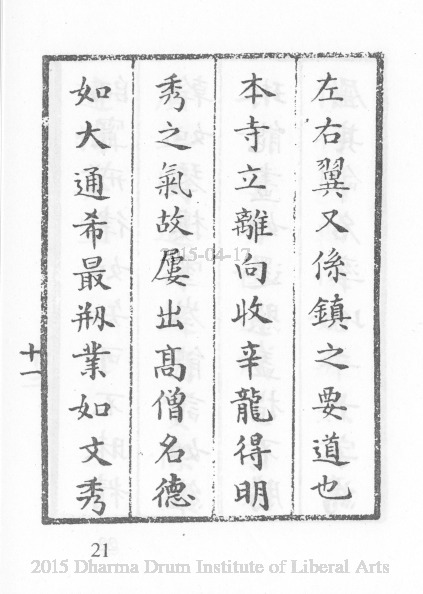 左右翼又係鎮之要道也
本寺立離向收辛龍得明
秀之氣故屢出髙僧名德
如大通希最剏業如文秀
十一
15-04-17
21
2015 Dharma Drum Institute of Liberal Arts